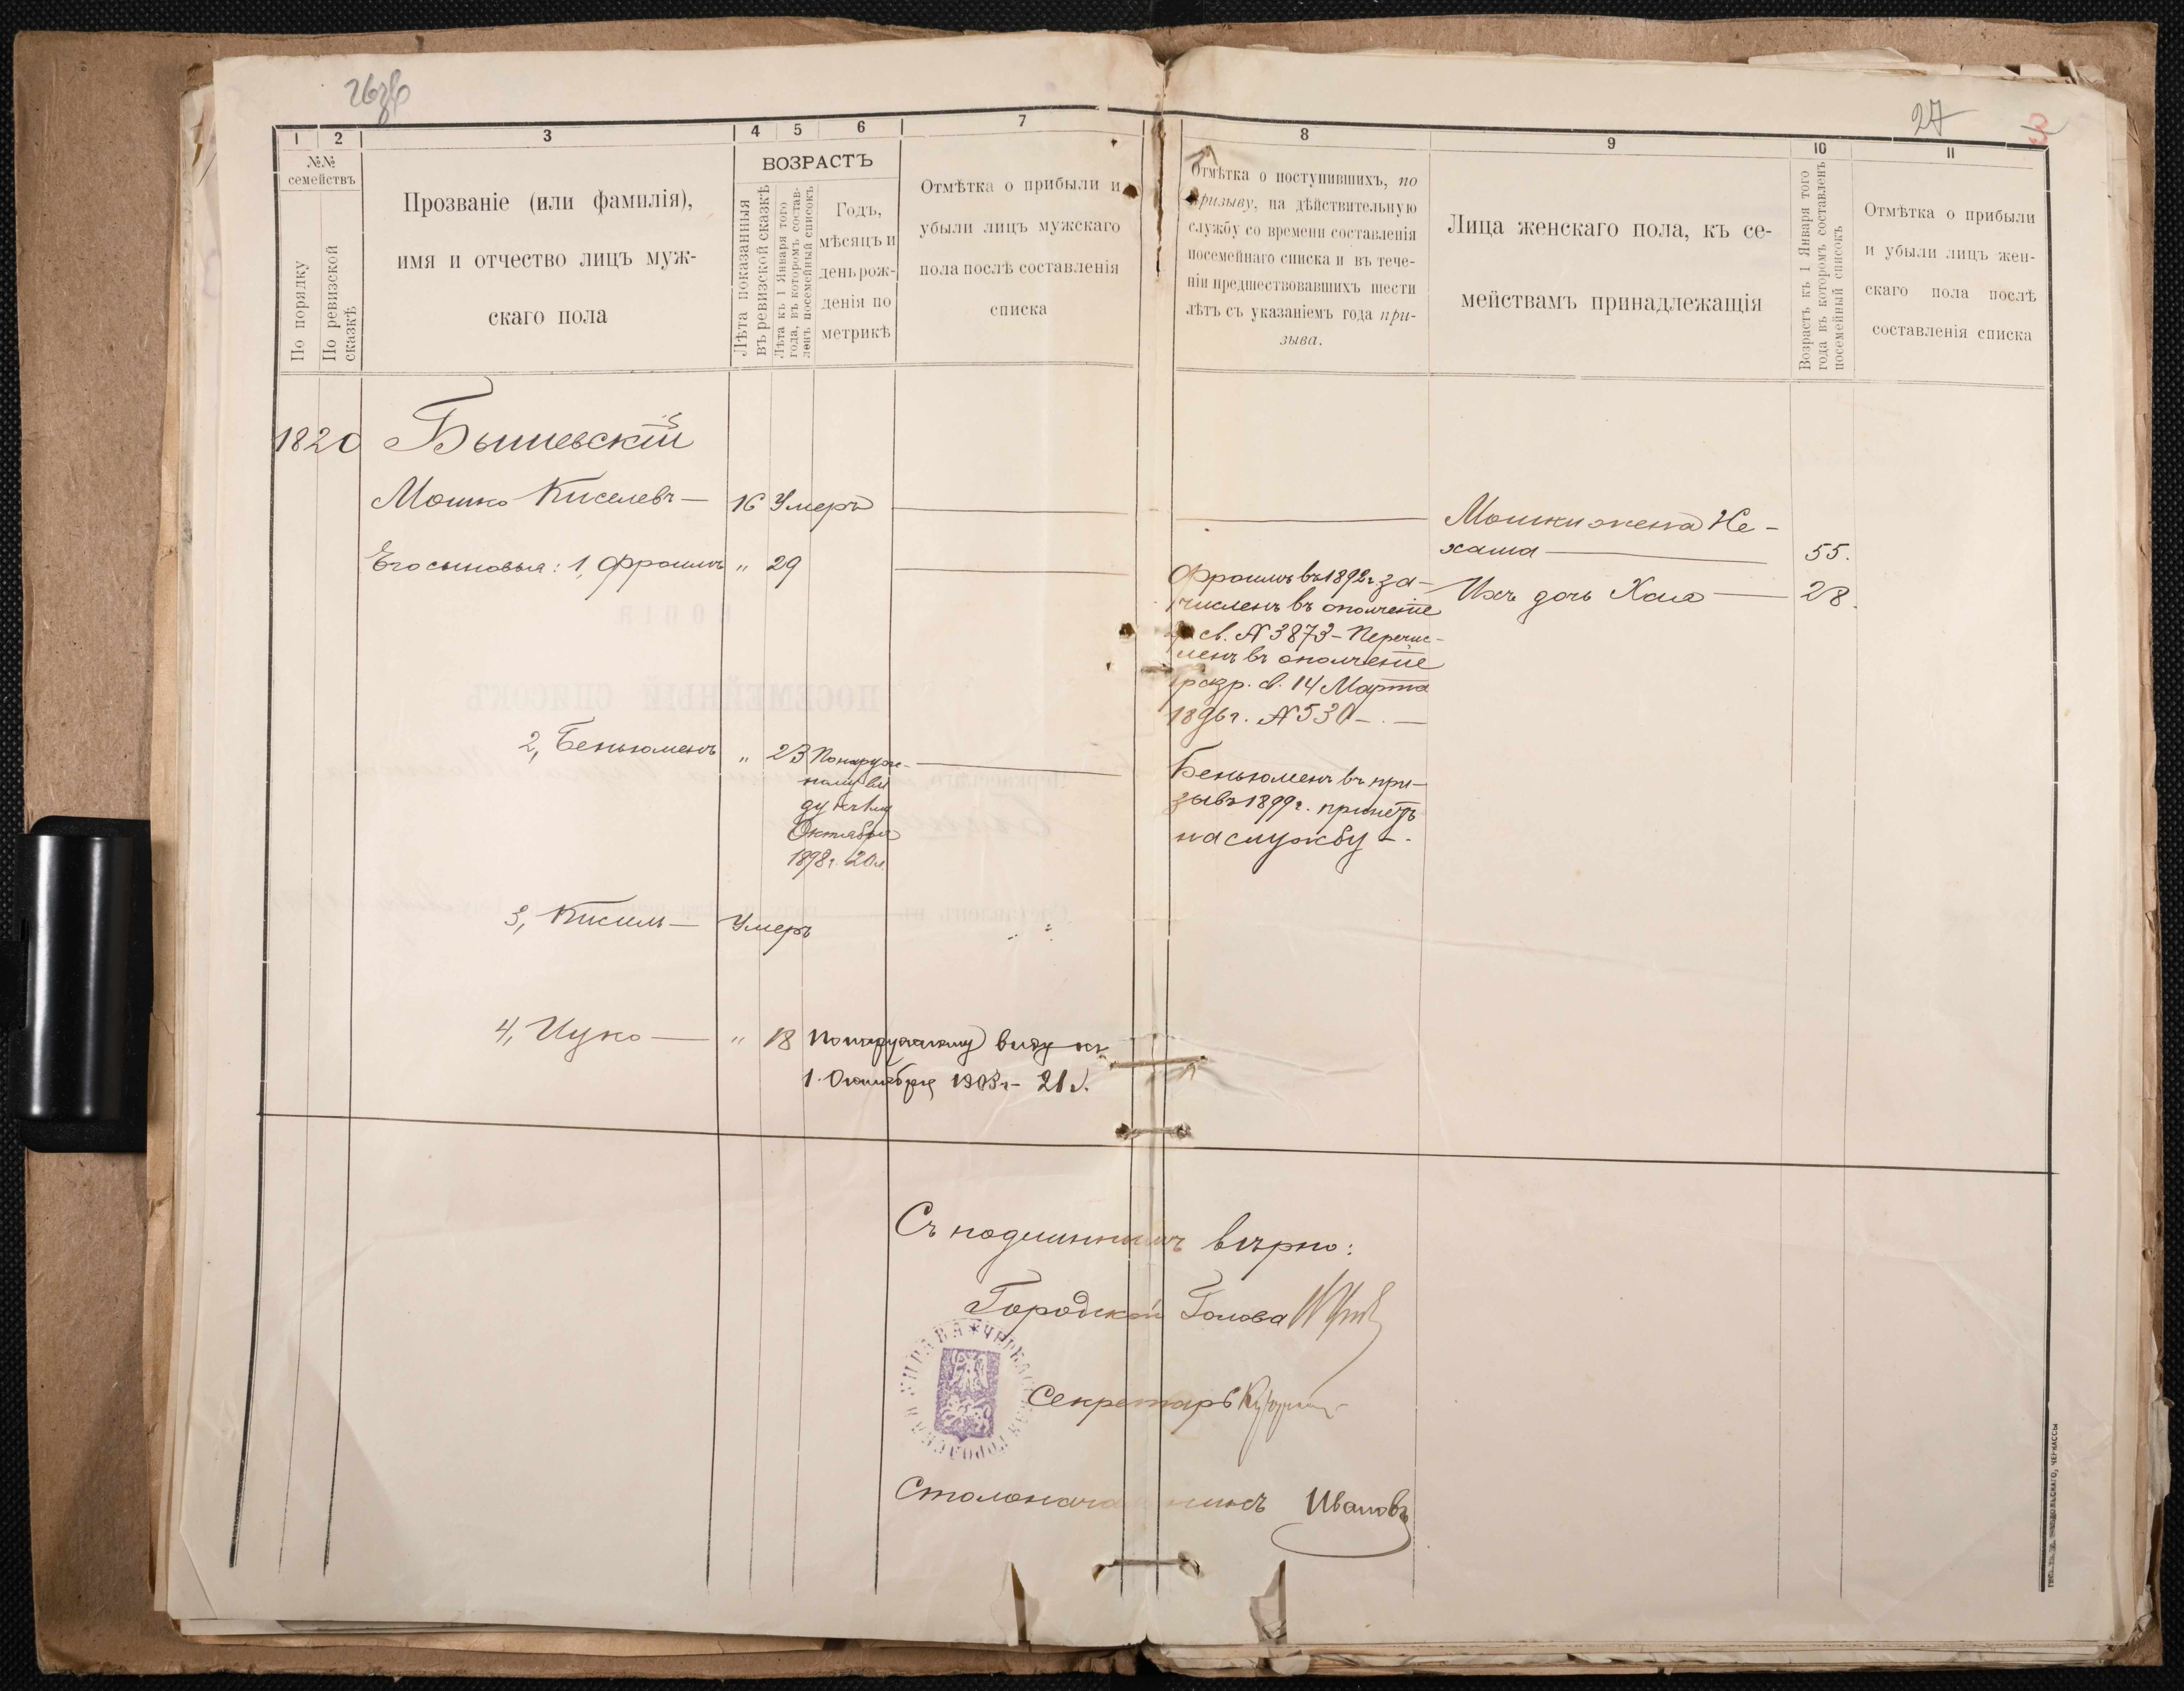 26об
27
3
1
2
3
4
5
6
7
8
9
10
11
№№
семействъ
По порядку
По ревизской
сказкѣ
Прозваніе (или фамилія),
имя и отчество лицъ муж-
скаго пола
ВОЗРАСТЪ
Лѣта показанныя
въ ревизской сказкѣ
Лѣта къ 1 Января того
года, въ которомъ состав-
ленъ посемейный списокъ
Годъ,
мѣсяцъ и
день рож-
денія по
метрикѣ
Отмѣтка о прибыли и
убыли лицъ мужскаго
пола послѣ составленія
списка
Отмѣтка о поступившихъ, по
призыву, на дѣйствительную
службу со времени составленія
посемейнаго списка и въ тече-
ніи предшествовавшихъ шести
лѣтъ съ указаніемъ года при-
зыва.
Лица женскаго пола, къ се-
мействамъ принадлежащія
Возрастъ къ 1 Января того
года въ которомъ составленъ
посемейный списокъ
Отмѣтка о прибыли
и убыли лицъ жен-
скаго пола послѣ
составленія списка
1820 Бышевскій
Мошко Киселевъ — 16 Умеръ
Мошки жена Не-
хама — 55.
Его сыновья: 1, Фроимъ " 29
Фроимъ въ 1892 г. за-
численъ въ ополченіе
св. № 3873 – Перечис-
ленъ въ ополченіе
1 разр. св. 14 Марта
1896 г. № 530 – . —
Ихъ дочь Хая — 28.
2, Беньюменъ " 23 По наруж-
ному ви
ду къ 1му
Октября
1898 г. 20 л.
Беньюменъ въ при-
зывъ 1899 г. принятъ
на службу – .
3, Кисиль — Умеръ
4, Ицко — " 18 По наружному виду къ
1. Октября 1903 г – 21 л.
Съ подлиннымъ вѣрно:
Городской Голова
Секретарь
Столоначальникъ Ивановъ
ЧЕРКАССКАЯ ГОРОДСКАЯ УПРАВА